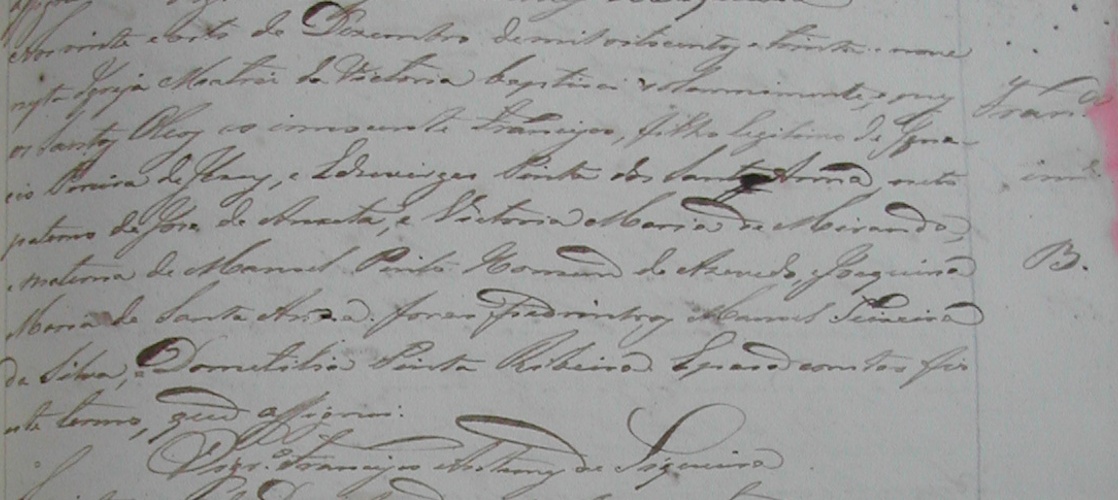 Aos vinte e oito de Dezembro de mil oitocentos e trinta e nove
nesta Igreja Matriz da Victoria baptisei solemnimente, e puz
os Santos Oleos ao innocente Francisco, filho legitimo de Igna-
cio Pereira de Jesus, e Eduviges Pinta dos Santos Anna, neto
paterno de Jose de Anxeta, e Victoria Maria de Miranda,
e materna de Manoel Pinto Homem de Azevedo, e Joaquina
Maria de Santa Anna: forão Padrinhos Manoel Teixeira
da Silva, e Dometilia Pinta Ribeira. E para constar fiz
este termo, que assignei:
Francisco Antunes de Siqueira
Fran.
B.